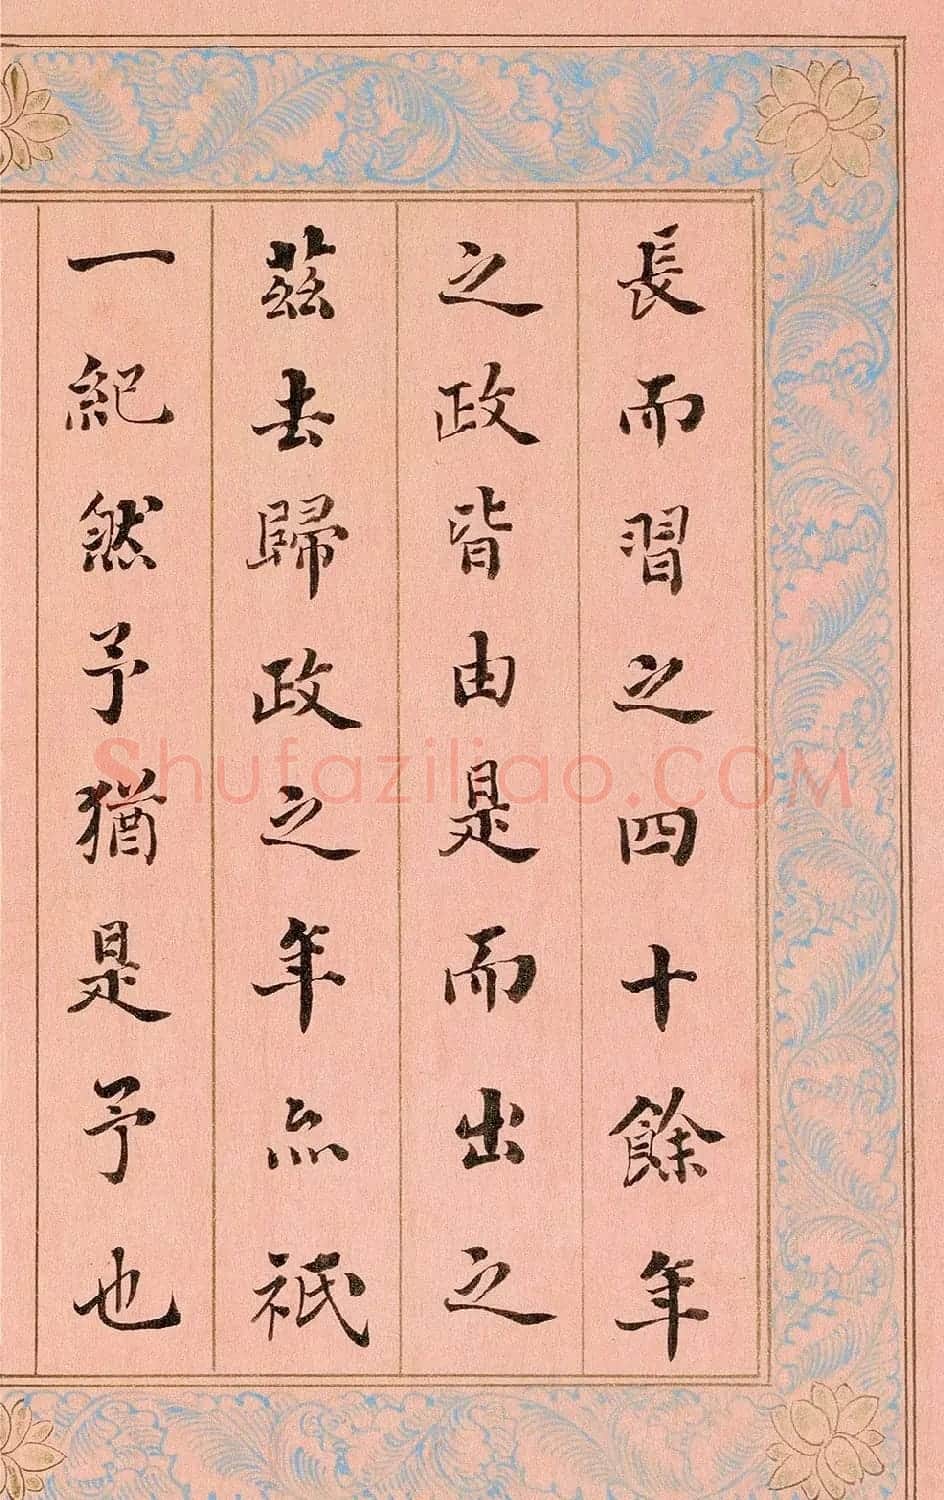 長而習之四十餘年
之政皆由是而出之
茲去歸政之年亦祇
一紀然予猶是予也
Shufaziliao.COM